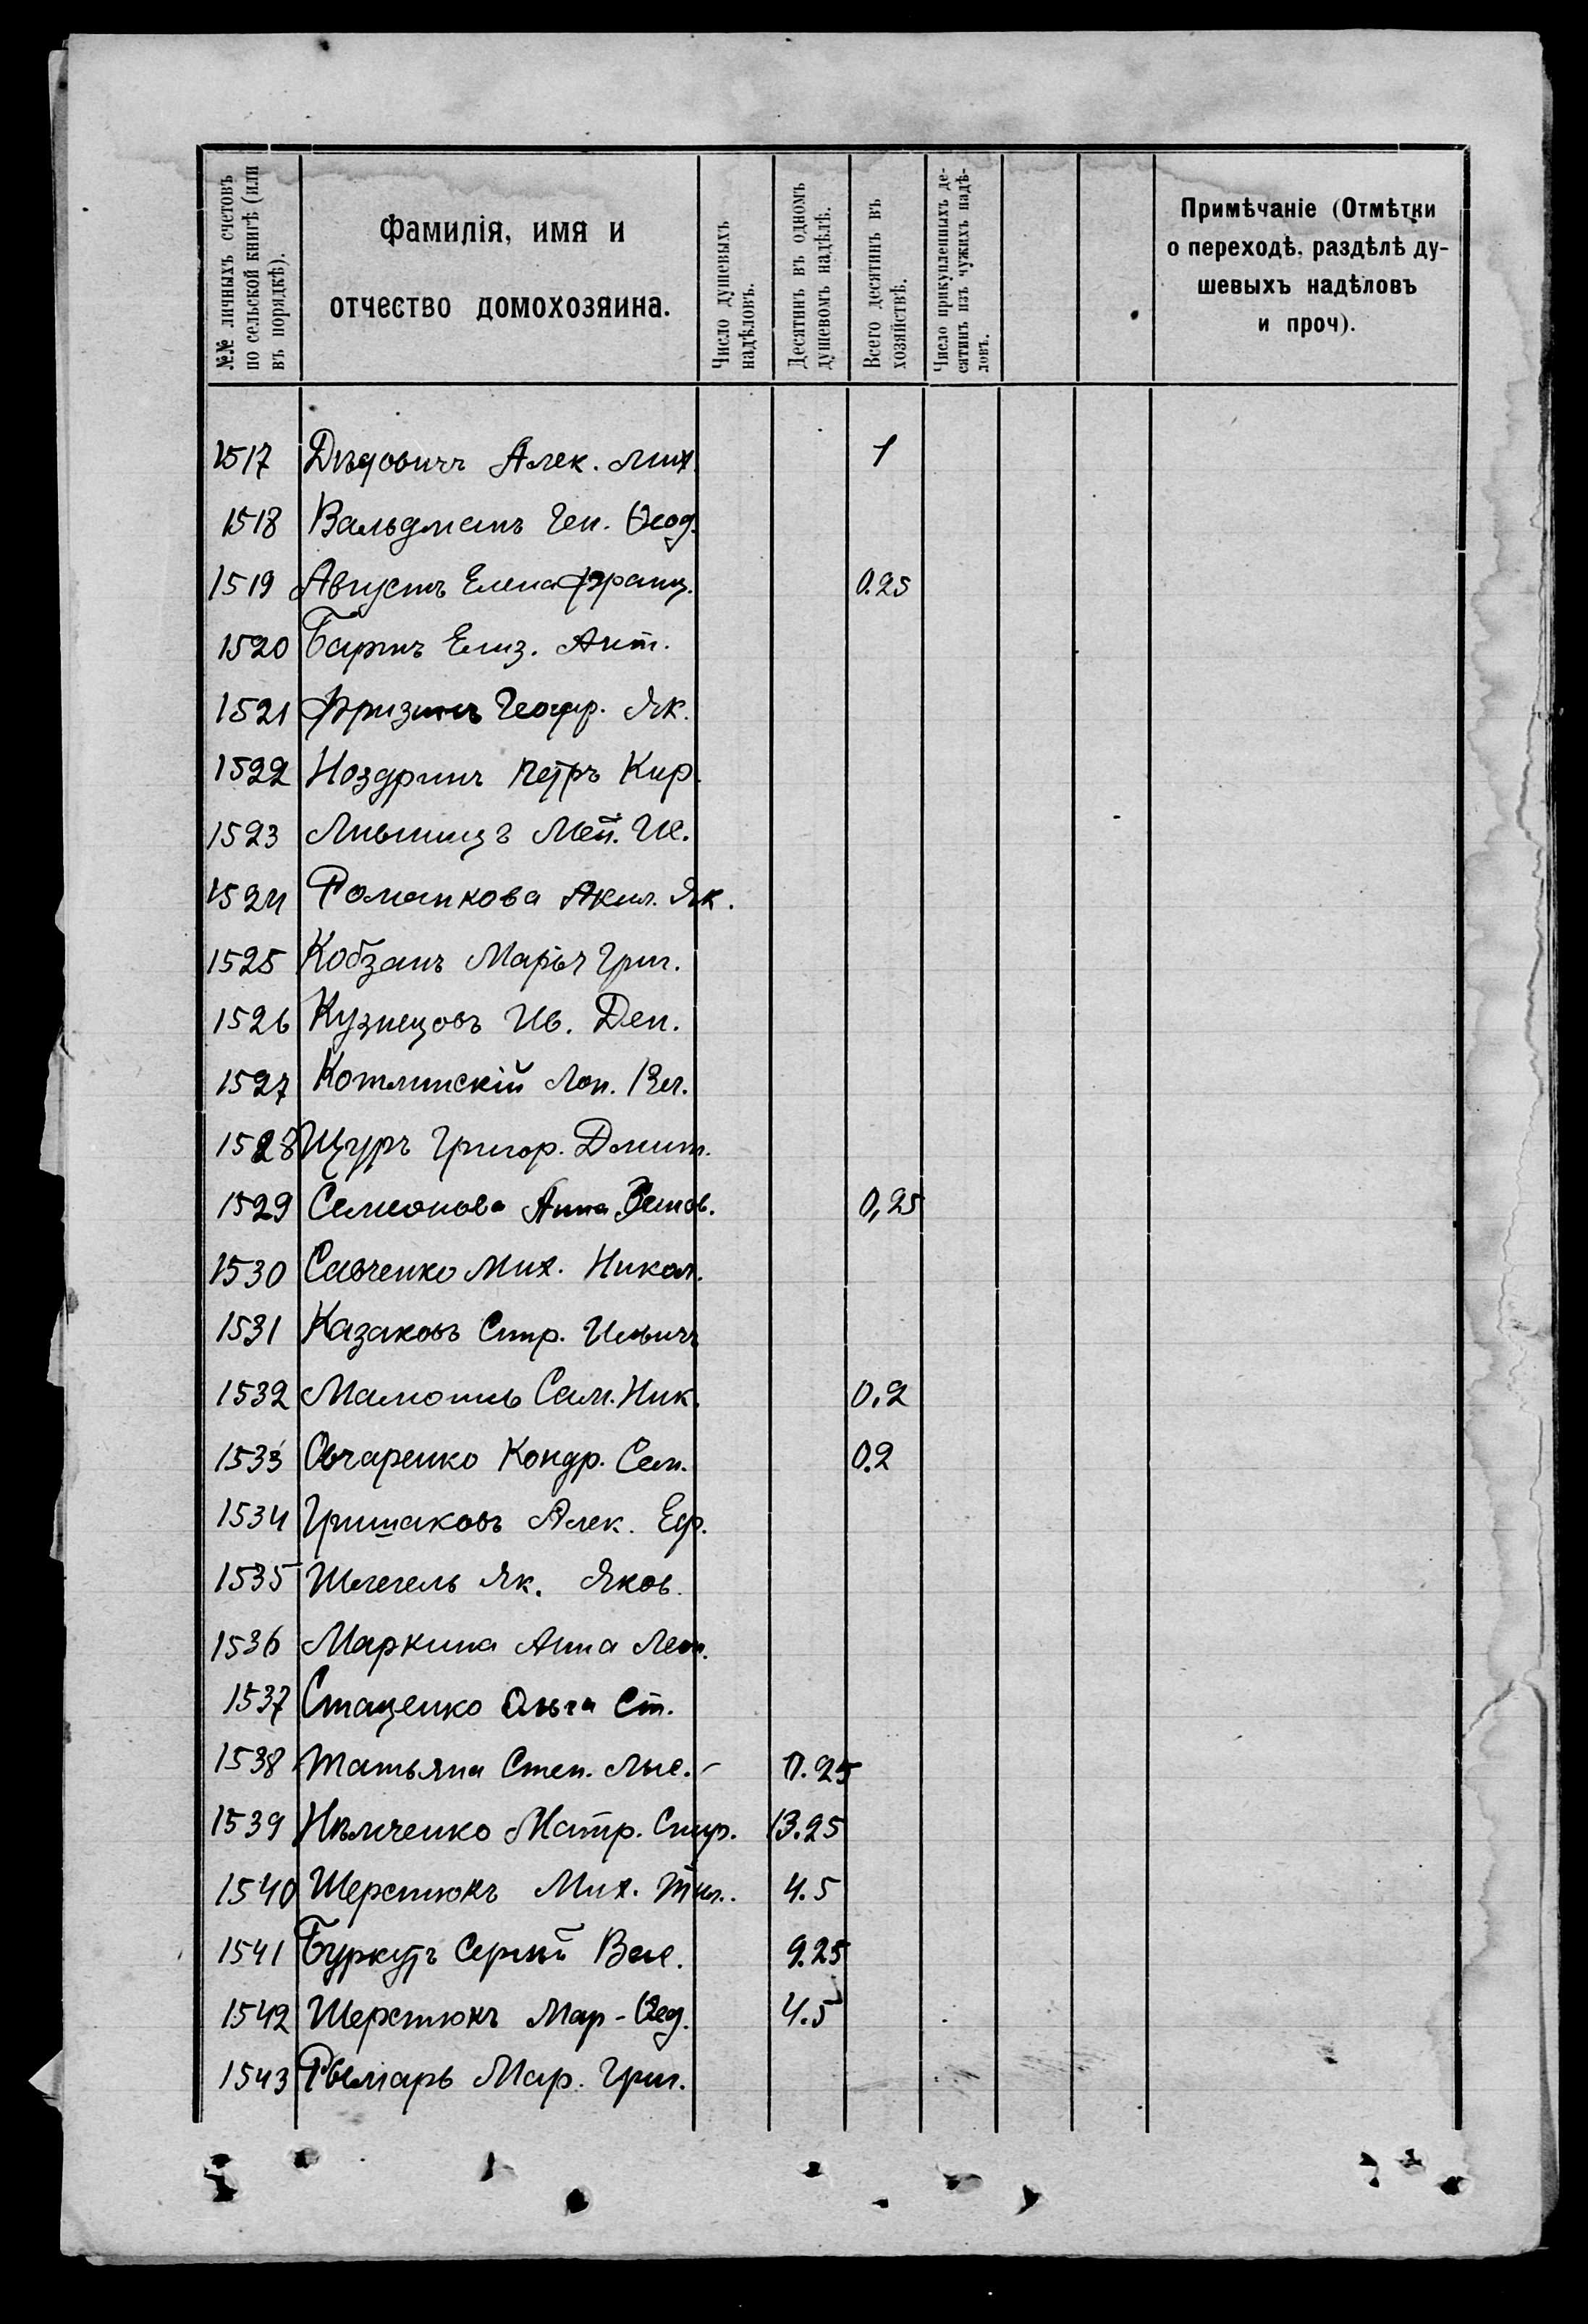 №№ личныхъ счетовъ по сельской книгѣ (или въ порядкѣ).
Фамилія, имя и
отчество домохозяина.
Число душевыхъ надѣловъ.
Десятинъ въ одномъ душевомъ надѣлѣ.
Всего десятинъ въ хозяйствѣ.
Число прикупленныхъ десятинъ изъ чужихъ надѣловъ.
Примѣчаніе (Отмѣтки
о переходѣ, раздѣлѣ ду-
шевыхъ надѣловъ
и проч).
1517 Дѣдовичъ Алек. Мих. 1
1518 Вальдманъ Ген. Ѳеод.
1519 Августъ Елена Франц. 0.25
1520 Елиз. Ант.
1521 Як.
1522 Ноздринъ Петръ Кир.
1523
1524 Романкова Акил. Як.
1525 Кобзанъ Марья Григ.
1526 Кузнецовъ Ив. Ден.
1527 Котлинскій
1528 Щуръ Григор. Дмит.
1529 Семеонова Анна 0,25
1530 Савченко Мих. Никол.
1531 Казаковъ Спир. Ильичъ
1532 Сам. Ник. 0.2
1533 Овчаренко Кондр. Сем. 0.2
1534 Гришаковъ Алек. Еф.
1535 Шлегель Як. Яков.
1536 Маркина Анна Леон.
1537 Стаценко Ольга Ст.
1538 Татьяна Степ. Лые.- 0.25
1539 Нѣмченко Матр. Спир. 13.25
1540 Шерстюкъ Мих. Тим.. 4.5
1541 Буркутъ Сергѣй Вас. 9.25
1542 Шерстюкъ Мар-Ѳед. 4.5
1543 Рымарь Мар. Григ.